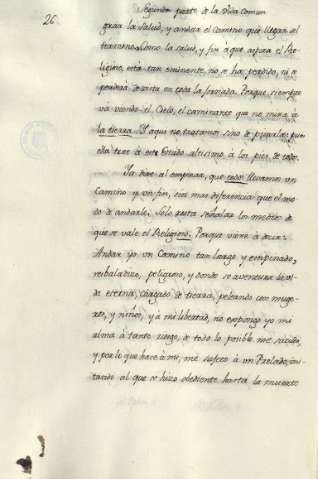 26. Segunda parte de la Vida comun
grar la salud, y andará el camino que llegan al
termino. Como la salud, y fin á que aspira el Re-
ligioso, está tan eminente, no se ha perdido, ni se
perderá de vista en toda la jornada. Porque siempre
vá viendo el Cielo, el caminante que no mira á
la tierra. Y aqui no tratamos sino de
este Estado altisimo, á los pies de todo.
Ya dixe al empezar, que todos llevamos un
Camino, y un fin, sin mas diferencia que el mo-
do de andarle. Solo resta señalar los medios de
que se vale el Religioso. Porque viene á decir:
Andar yo un Camino tan largo, y empinado,
resbaladizo, peligroso, y donde se aventura la vi-
da eterna, cargado de tierra, peleando con muge-
res, y niños, y á mi libertad, no expongo yo mi
alma á tanto riesgo, de todo lo posible me sacudo,
y por lo que hace á mi, me sujeto á un Prelado, imi-
tando al que se hizo obediente hasta la muerte